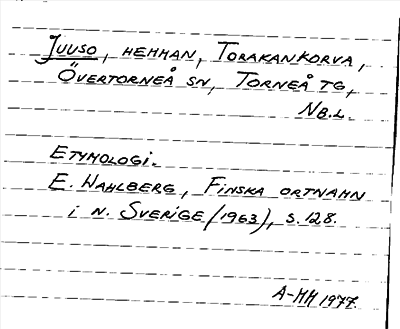 Juuso, hemman, Torakankorva,
Övertorneå sn, Torneå tg,
Nb.l.
Etymologi.
E. Wahlberg, Finska ortnamn
i n. Sverige (1963), s. 128.
A-MH 1977.